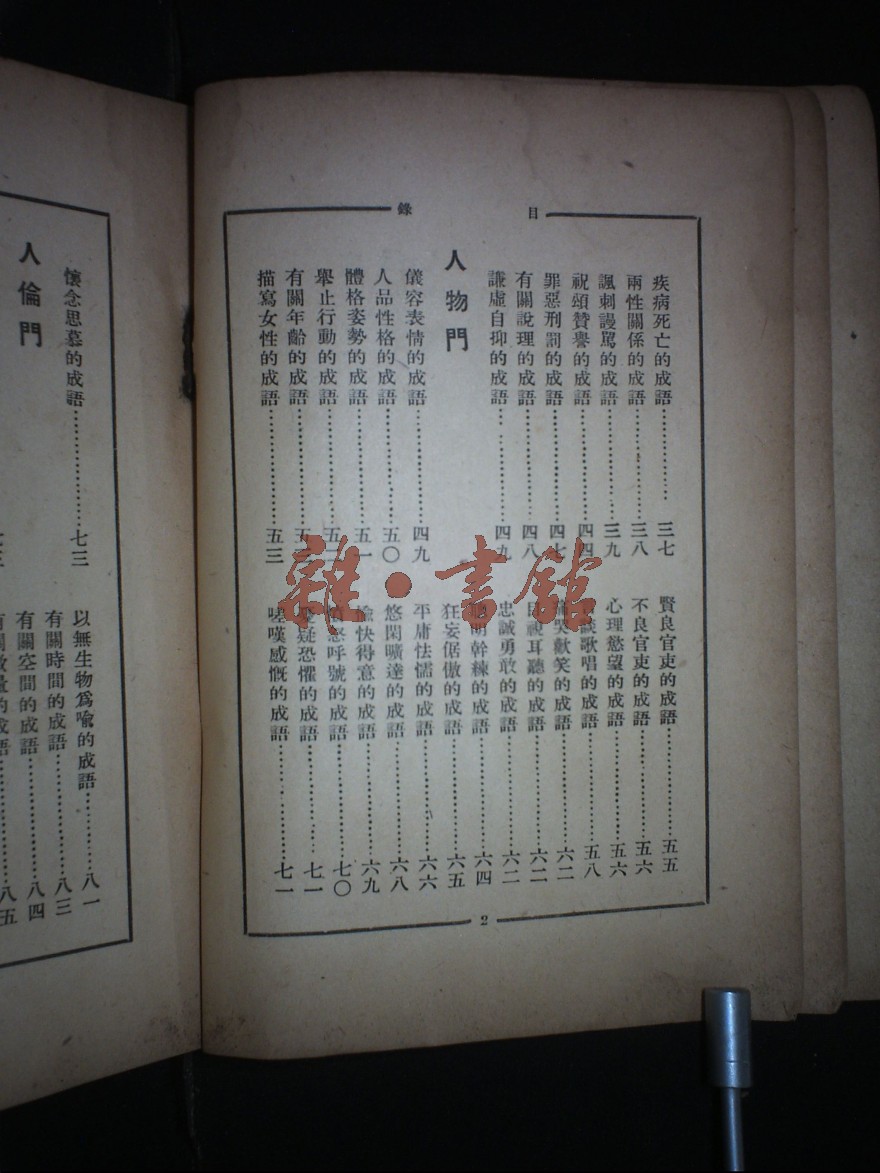 目錄
疾病死亡的成語……………三七
兩性關係的成語……………三八
諷刺謾罵的成語……………三九
祝頌贊譽的成語……………四四
罪惡刑罰的成語……………四七
有關說理的成語……………四八
謙虛自抑的成語……………四九
人物門
儀容表情的成語……………四九
人品性格的成語……………五〇
體格姿勢的成語……………五一
舉止行動的成語……………五二
有關年齡的成語……………五
描寫女性的成語……………五三
賢良官吏的成語……………五五
不良官吏的成語……………五六
心理慾望的成語……………五六
談歌唱的成語……………五八
哭歡笑的成語……………六二
目視耳聽的成語……………六二
忠誠勇敢的成語……………六二
聰明幹練的成語……………六四
狂妄倨傲的成語……………六五
平庸怯懦的成語……………六六
悠閑曠達的成語……………六八
愉快得意的成語……………六九
怒呼號的成語……………七〇
疑恐懼的成語……………七一
嗟嘆感慨的成語……………七一
2
懷念思慕的成語……………七三
人倫門
以無生物爲喩的成語………八一
有關時間的成語……………八三
有關空間的成語……………八四
有關數量的成語……………八五
雜·書館